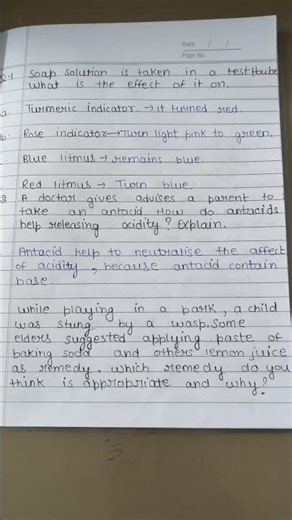 Date / /
Page No.
Q-1 Soap solution is taken in a testtube
what is the effect of it on.
a. Turmeric indicator. → it turned red.
b. Rose indicator → Turn light pink to green.
Blue litmus → remains blue.
Red litmus → Turn blue.
A doctor gives advises a parent to
take an antacid. How do antacids
help releasing acidity? Explain.
Antacid help to neutralise the affect
of acidity, because antacid contain
base.
While playing in a park, a child
was stung by a wasp. Some
elders suggested applying paste of
baking soda and others lemon juice
as remedy. which remedy do you
think is appropriate and why?